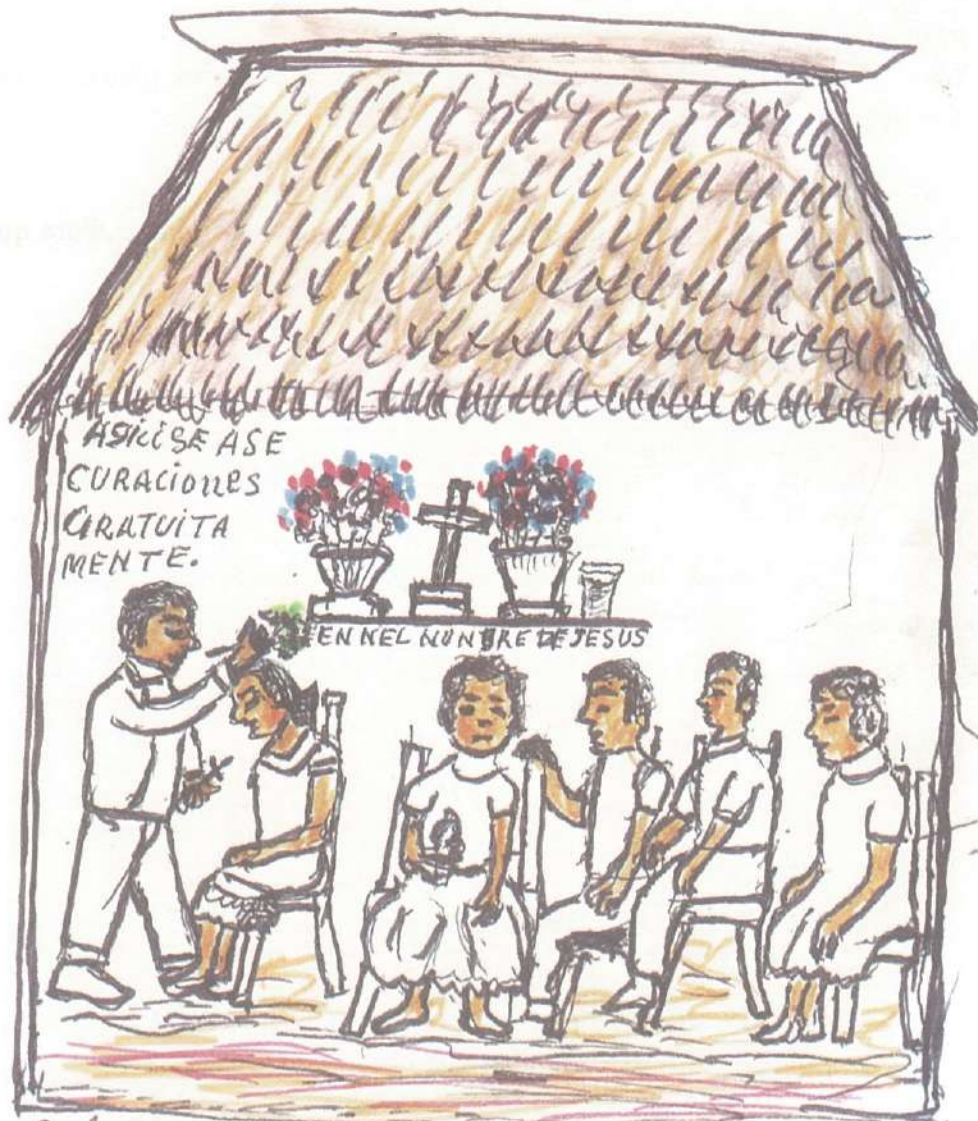 ASICISE ASE
CURACIONES
GRATUITA
MENTE.
EN NEL NUNBRE DE JESUS